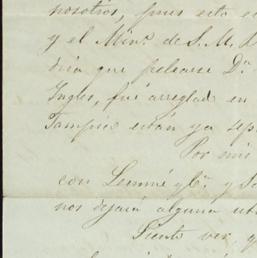 nosotros, pues esto es
y el Minº. de S. M. B
dria que pelearse Dn
Ingles, fué arreglad en
Tampico están ya sep
Por mi
con Lemmé y Cª. y S
nos dejará alguna uti
Siento ver, q